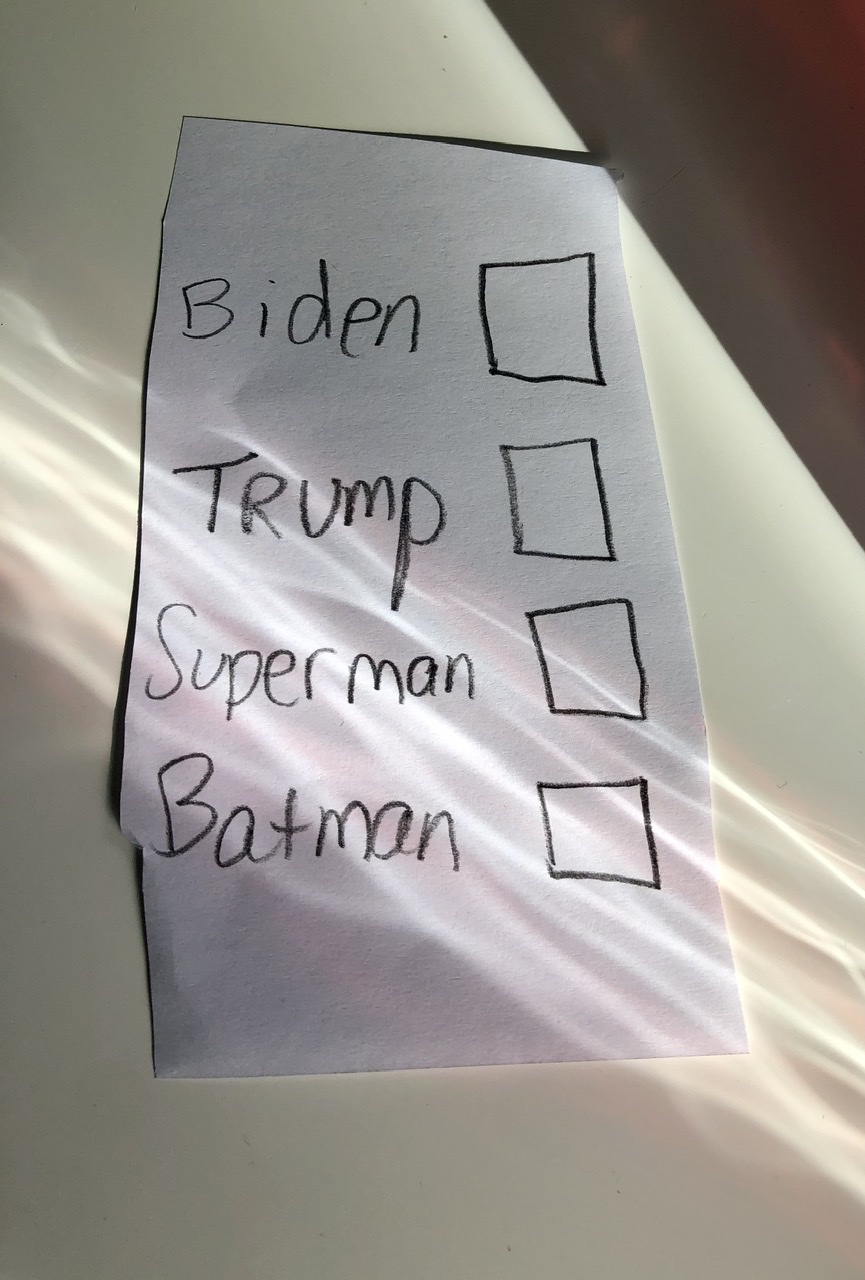 Biden
TRUmp
Superman
Batman